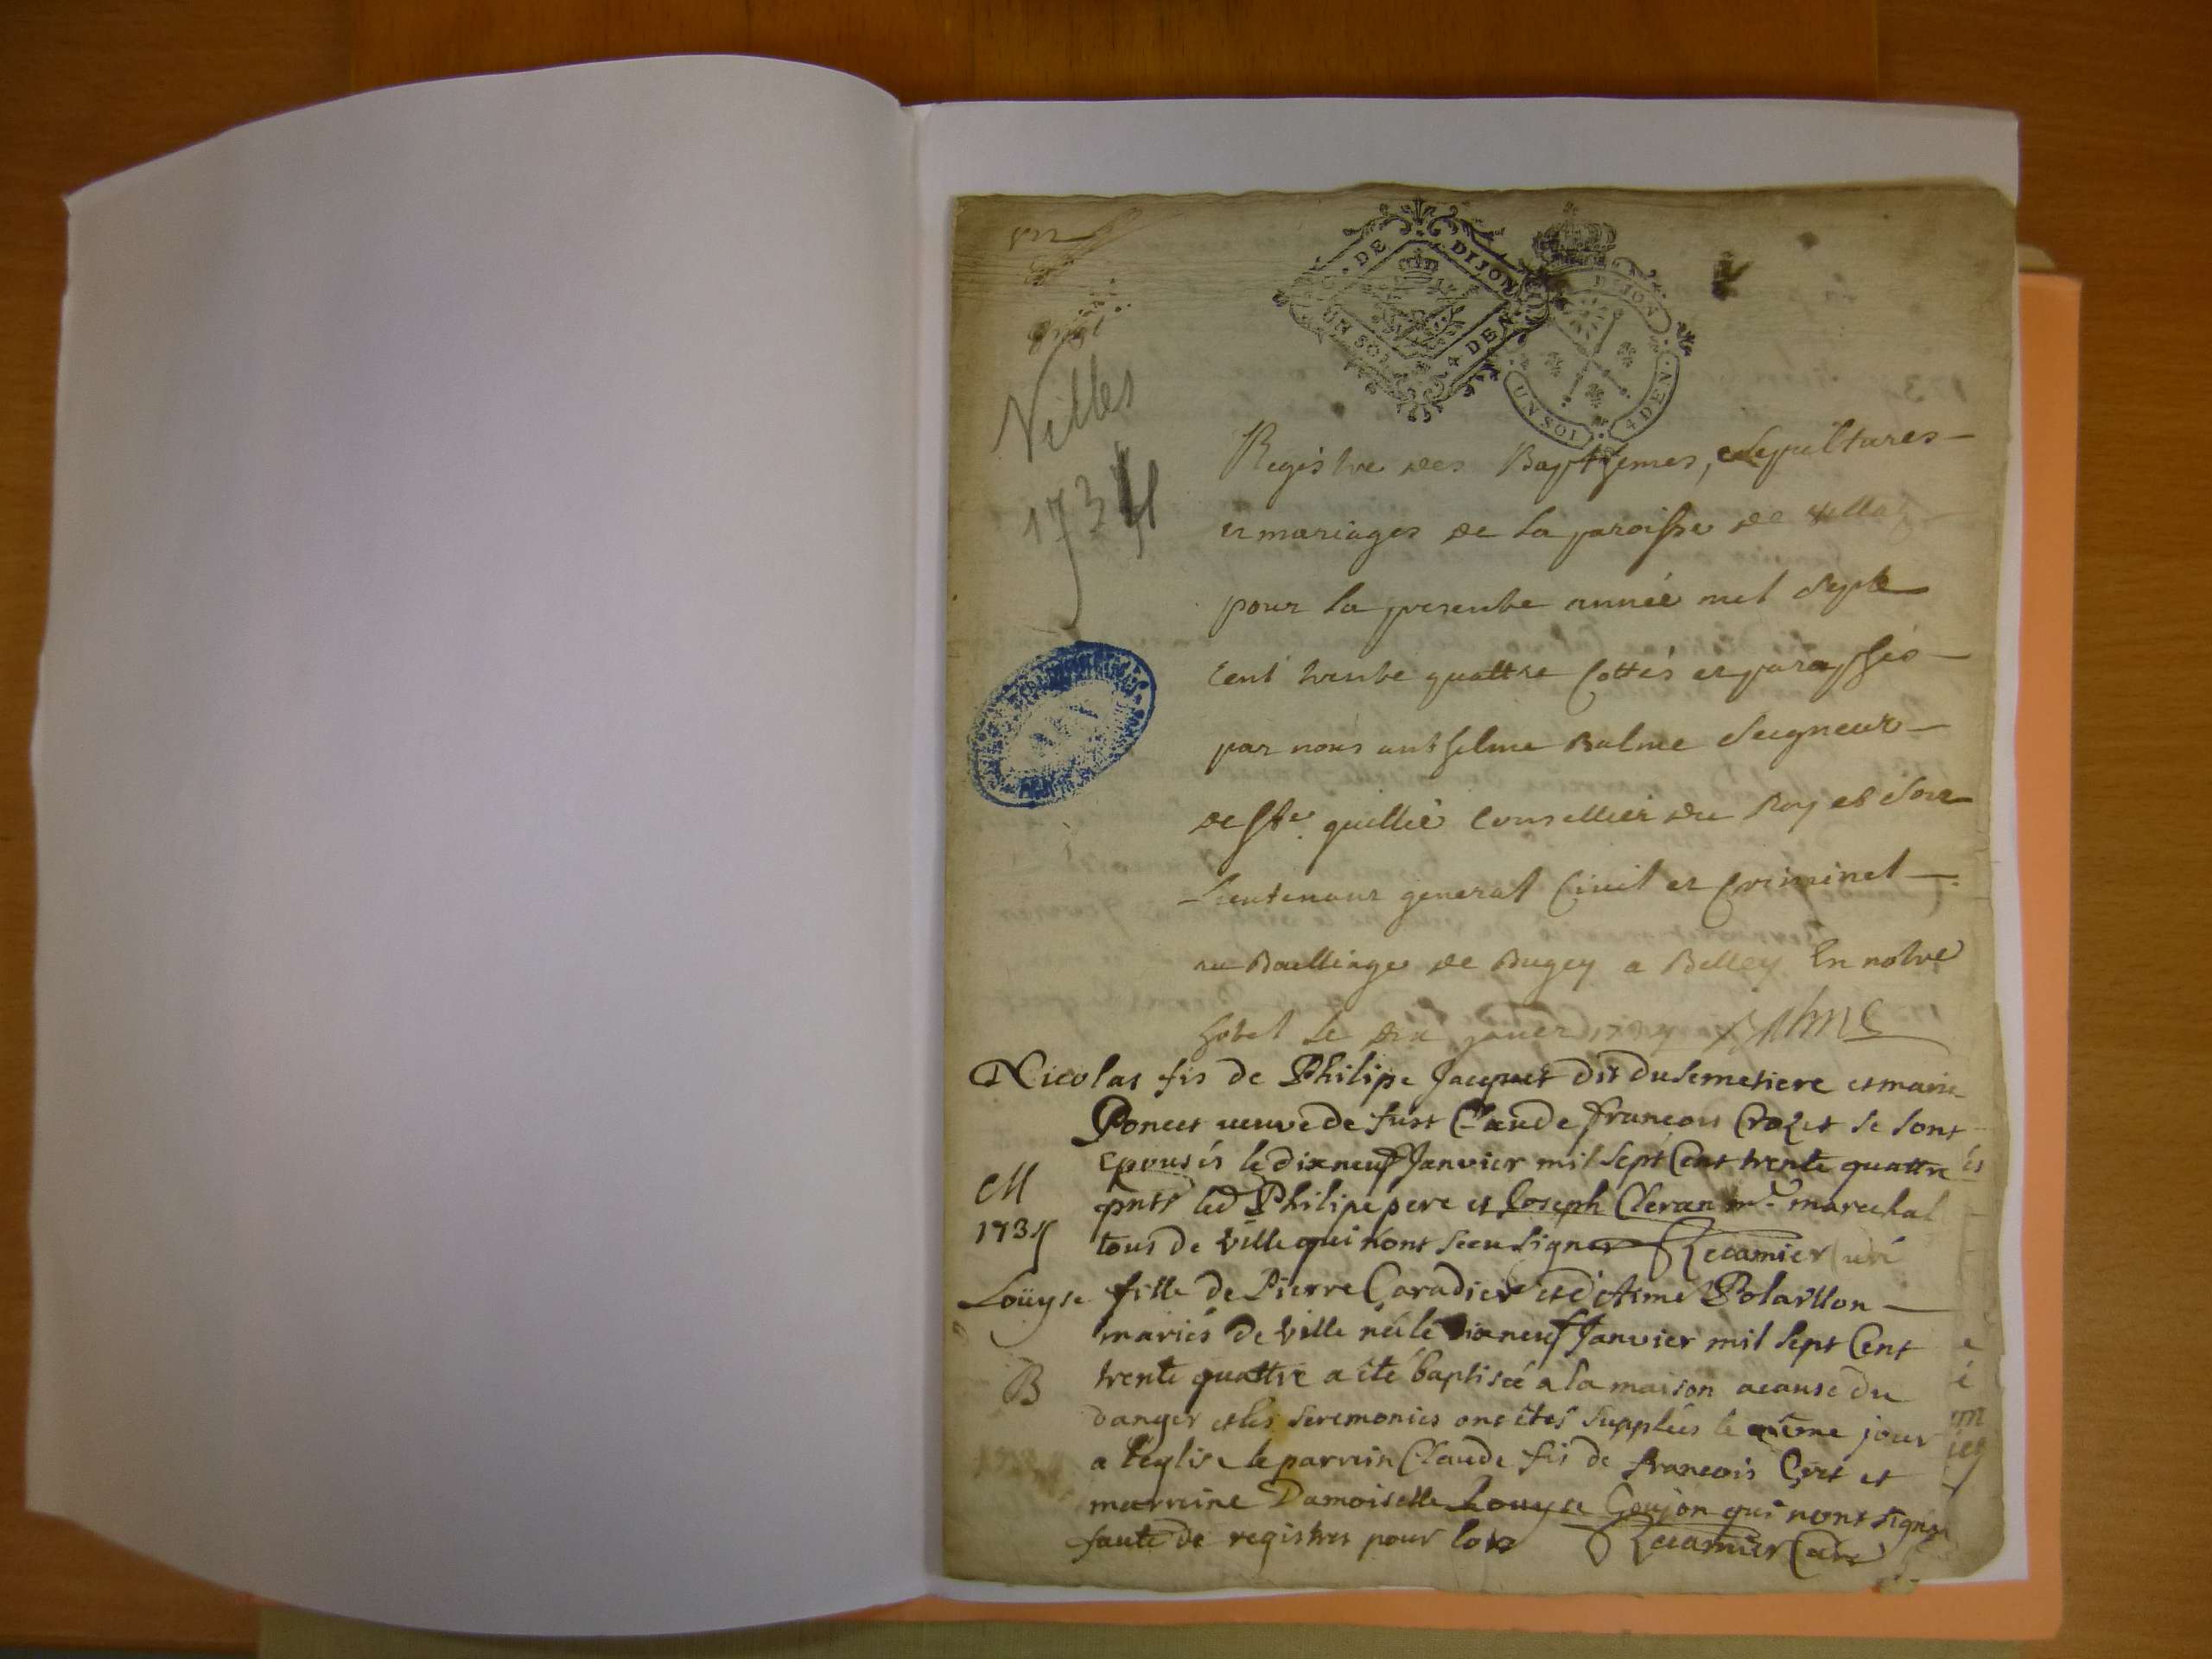 DE DIJON
UN SOL 4 DEN.
DIJON
UN SOL 4 DEN.
Villes
1734
Registre des Baptesmes, Sepultures
et mariages de la paroisse de Villaz
pour la presente année mil Sept
Cent trente quattre Cottés et paraffés
par nous anthelme Balme Seigneur
de Ste. Conseillier du Roy et Son
Lieutenant general Civil et Criminel
au Bailliage de Bugey a Belley En notre
hotel le dix janer 1734 Balme
Nicolas fis de Philipe Jacquet dit du Semetiere et marie
Poncet veuve de fust Claude francois Crozet se sont
Epousés le dixneuf Janvier mil sept Cent trente quattre
M
1734
pnts led Philipe pere et Joseph Cleran me. marechal
tous de Ville qui n'ont sceu signer Recamier Curé
Loüyse fille de Pierre Caradier et d'Aimé Polaillon
mariés de Ville née le dixneuf Janvier mil sept Cent
B
trente quattre a été baptisée a la maison acause du
danger et les seremonies ont étes supplées le même jour
a l'eglise le parrein Claude fis de francois Gret et
marreine Damoiselle Louyse Goujon qui n'ont signé
faute de registres pour lors Recamier Curé